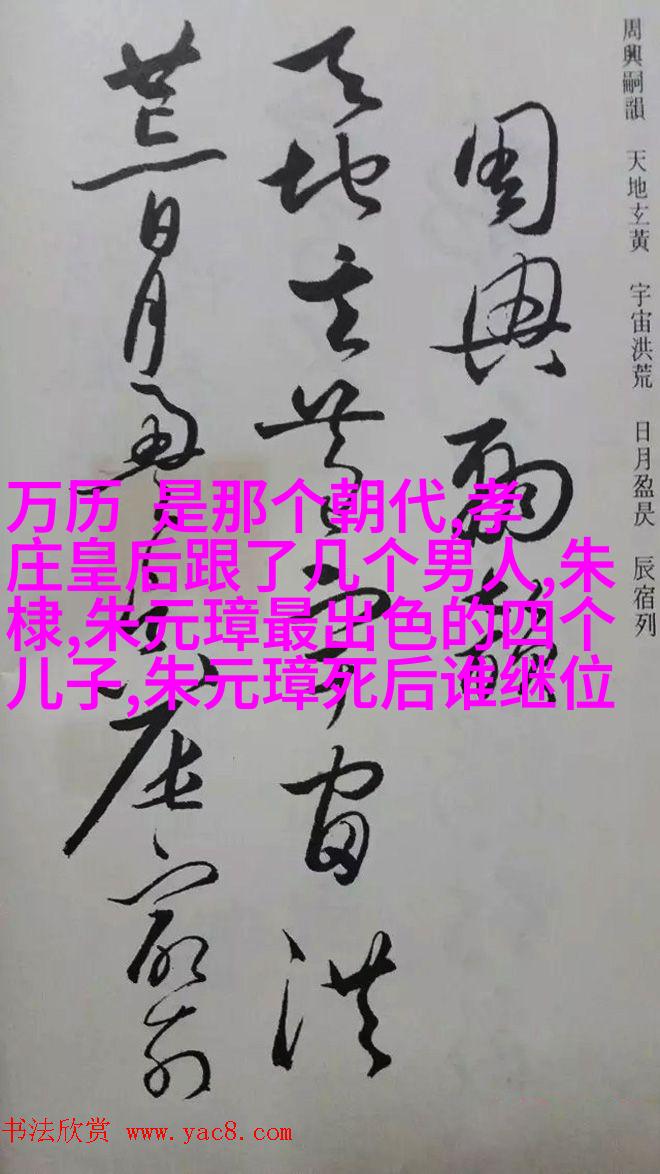 周興嗣韻 天地玄黃 宇宙洪荒 日月盈昃 辰宿列
周興嗣韻
天地玄黃宇宙洪
荒日月盈昃辰宿列
万历 是那个朝代,孝
庄皇后跟了几个男人,朱
棣,朱元璋最出色的四个
儿子,朱元璋死后谁继位
书法欣赏 www.yac8.com